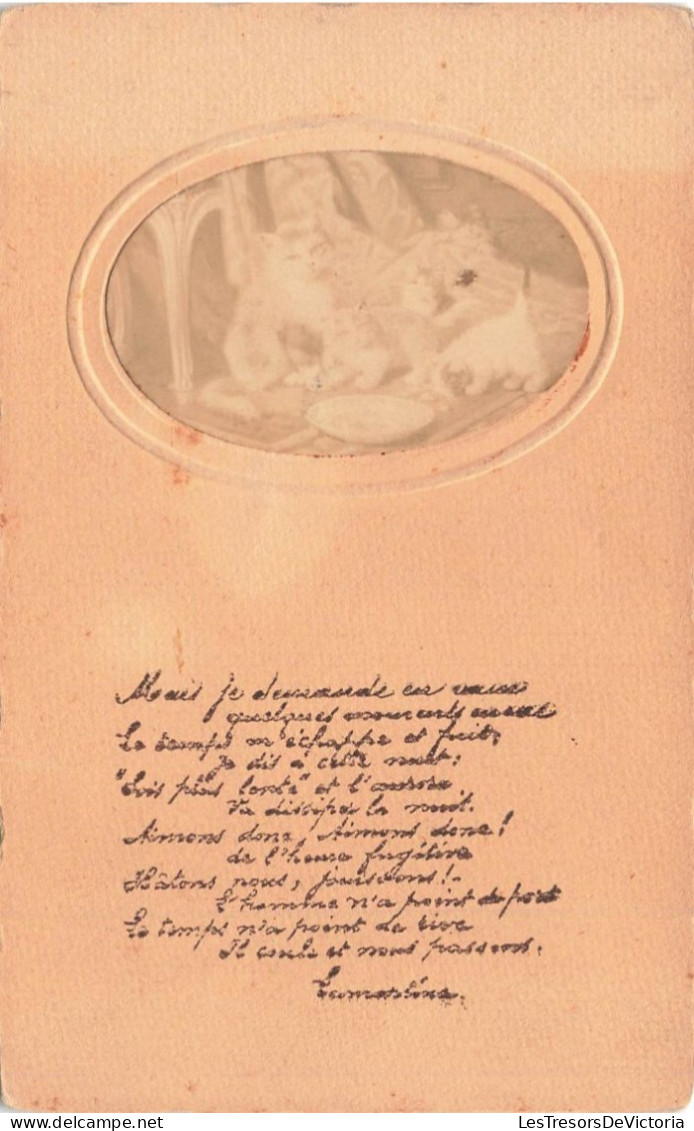 Mais je demande en vain
quelques moments encore
Le temps m'échappe et fuit,
Je dis à cette nuit:
"Sois plus lente" et l'aurore
Va dissiper la nuit.
Aimons donc, Aimons donc!
de l'heure fugitive
Hâtons nous, jouissons!
L'homme n'a point de port
Le temps n'a point de rive
Il coule et nous passons.
Lamartine.
delcampe.net
LesTresorsDeVictoria